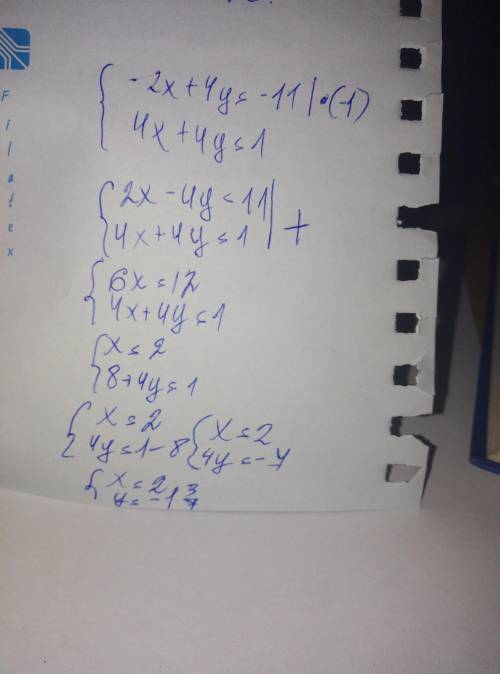 -2x+4y=-11|·(-1)
4x+4y=1
2x-4y=11
4x+4y=1 | +
6x=12
4x+4y=1
x=2
8+4y=1
x=2
4y=1-8
x=2
4y=-7
x=2
y=-1 3/4